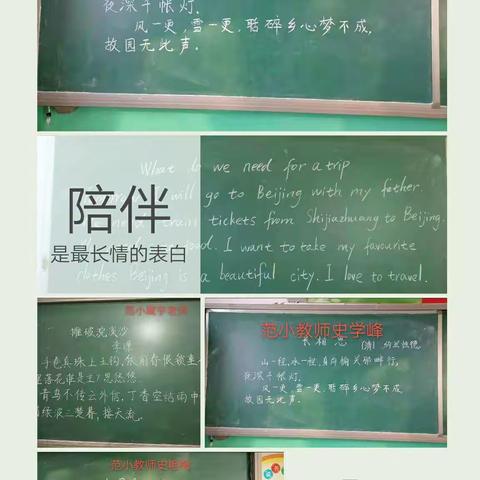 夜深千帐灯.
风一更,雪一更,聒碎乡心梦不成,
故园无此声.
What do we need for a trip
will go to Beijing with my father.
train tickets from Shijiazhuang to Beijing.
food. I want to take my favourite
clothes Beijing is a beautiful city. I love to travel.
陪伴
是最长情的表白
摊破浣溪沙
手卷真珠上玉钩,依前春恨锁重
落花谁是主?思悠悠
青鸟不传云外信,丁香空结雨中
接天流.
范小教师史学峰
长相思
山一程,水一程,身向榆关那畔行,
夜深千帐灯.
风一更,雪一更,聒碎乡心梦不成
故园无此声.
范小教师史